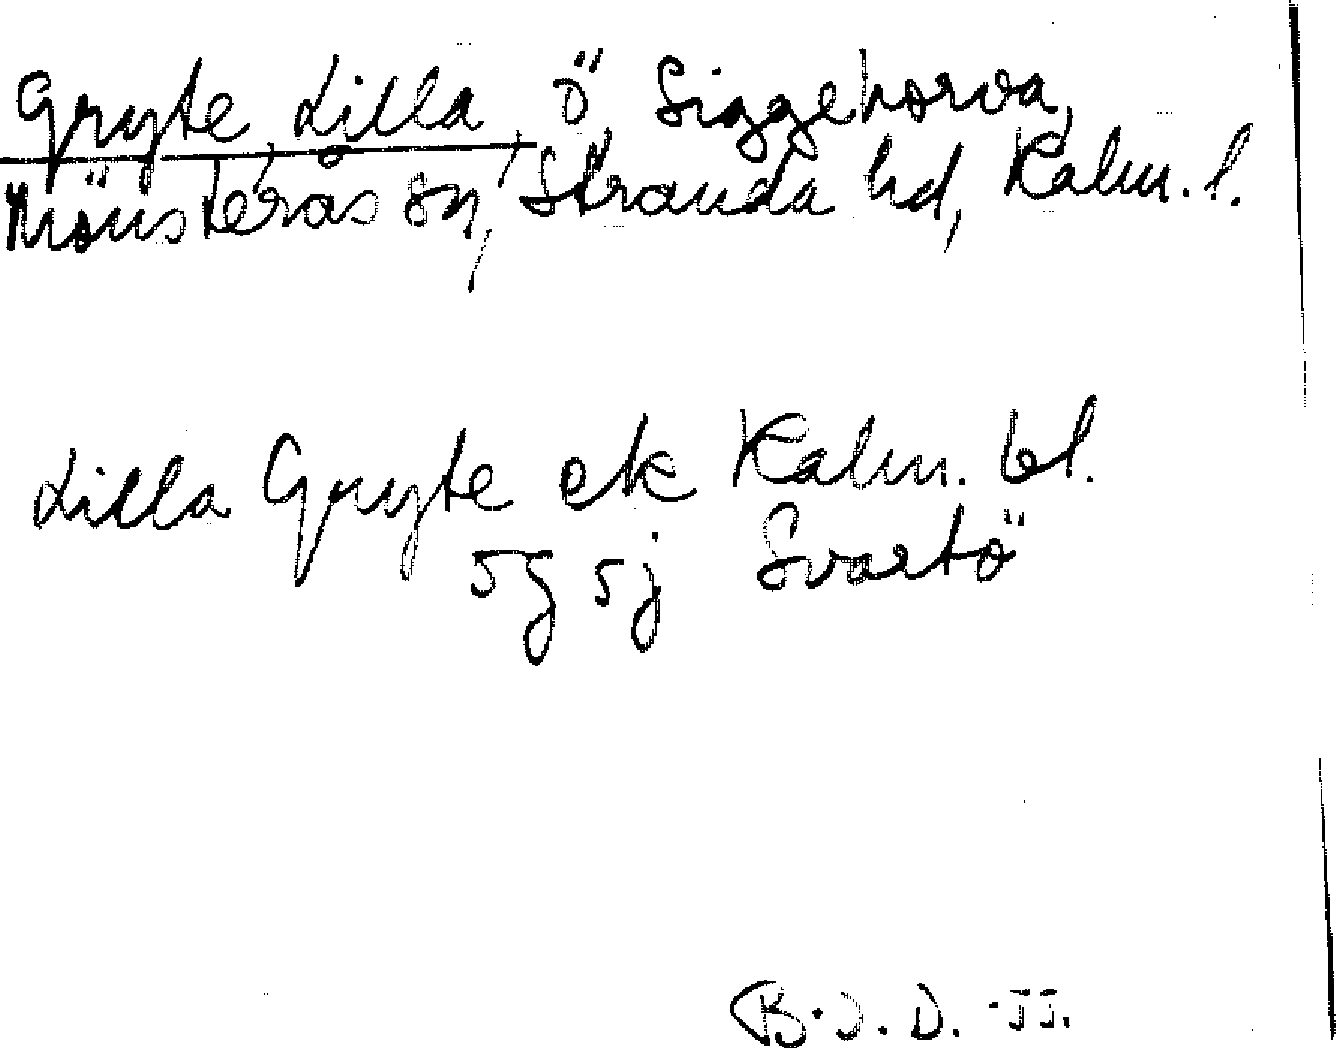 Gryte, Lilla, ö, Siggehorva,
Mönsterås sn, Stranda hd, Kalm. l.
Lilla Gryte ek Kalm. bl.
5g 5j Svartö
B.J.D. -55.